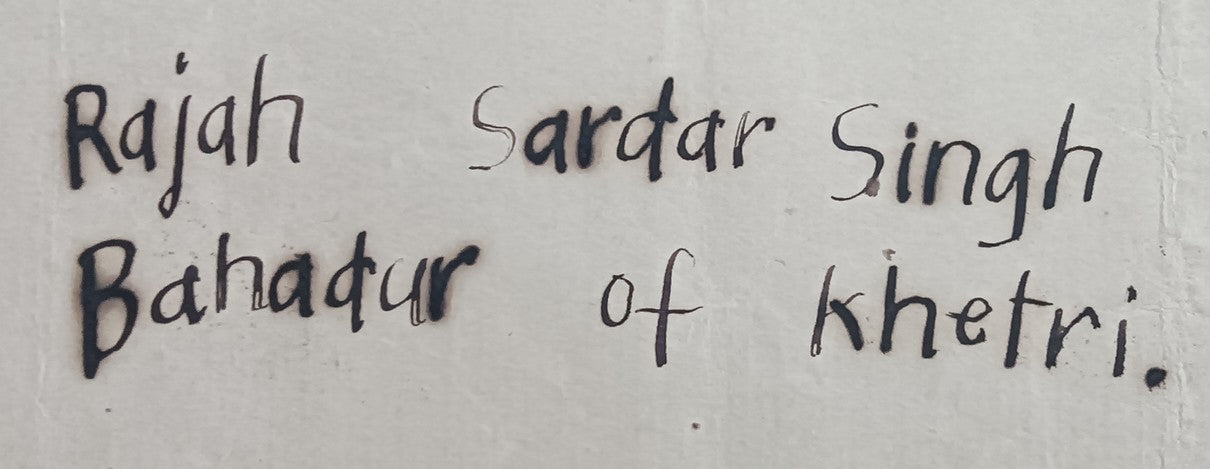 Rajah Sardar Singh
Bahadur of Khetri.